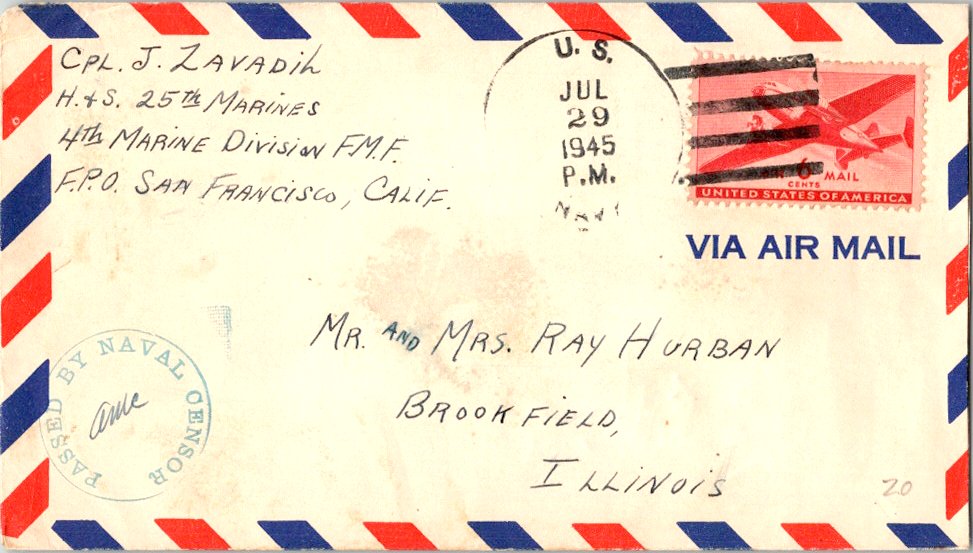 CPL. J. ZAVADIL
H.&S. 25th MARINES
4th MARINE DIVISION F.M.F.
F.P.O. SAN FRANCISCO, CALIF.
U.S.
JUL
29
1945
P.M.
NAVY
6 MAIL
CENTS
UNITED STATES OF AMERICA
VIA AIR MAIL
MR. AND MRS. RAY HURBAN
BROOKFIELD,
ILLINOIS
PASSED BY NAVAL CENSOR
20